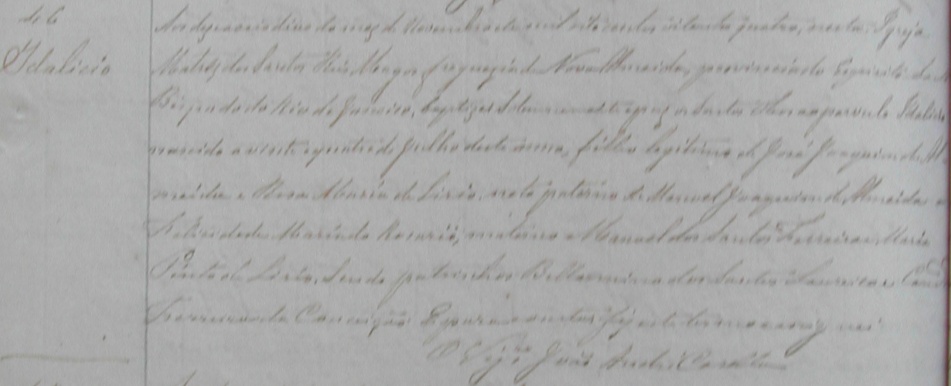 Idalicio
Aos dezenove dias do mez de Novembro de mil oito centos oitenta e quatro, nesta Igreja
Matriz dos Santos Reis Magos freguezia de Nova Almeida, provincia do Espirito
Bispado do Rio de Janeiro, baptizei solemnemente e puz os Santos Oleos ao parvulo Idalicio
nascido a vinte e quatro de Julho deste anno, filho legitimo de José Joaquim de Al
meida e Rosa Maria de Lirio, neto paterno de Manoel Joaquim de Almeida e
Felicidade Maria do Rosario, materno de Manoel dos Santos Ferreira e Maria
Pinto de Lirio. Sendo padrinhos Bellarmino dos Santos
Ferreira da Conceição. E para constar fiz este termo e assignei
O Vigr.o José